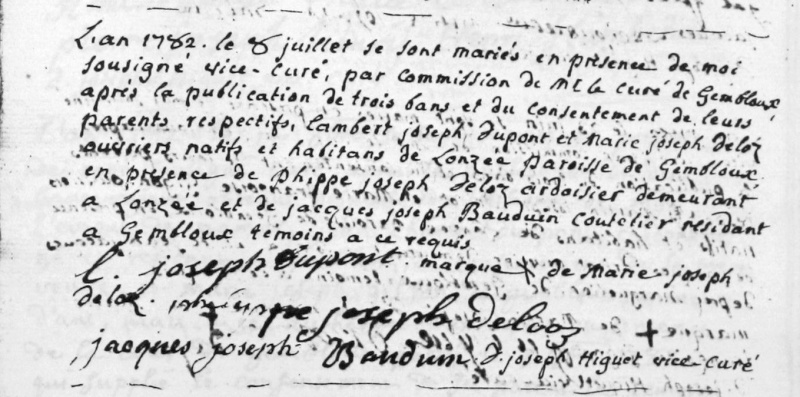 L'an 1782. le 8 juillet se sont mariés en présence de moi
sousigné vice-curé, par commission de Mr le curé de Gembloux
après la publication de trois bans et du consentement de leurs
parents respectifs, Lambert joseph Dupont et Marie joseph deloz
ouvriers natifs et habitans de Lonzée paroisse de Gembloux
en présence de phippe joseph deloz ardoisier demeurant
a Lonzée et de jacques joseph Bauduin coutelier residant
a Gembloux temoins a ce requis
l. joseph dupont marque de Marie joseph
deloz. philippe joseph deloz
jacques joseph Bauduin J. joseph Higuet vice-curé